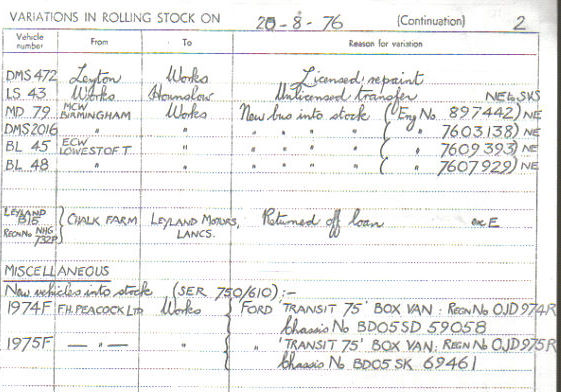 VARIATIONS IN ROLLING STOCK ON 20-8-76 (Continuation) 2
Vehicle number From To Reason for variation
DMS 472 Leyton Works Licensed repaint
LS 43 Works Hounslow Unlicensed transfer NE to SKS
MD 79 MCW BIRMINGHAM Works New bus into stock (Eng No 897442) NE
DMS 2016 " " " " " " ( " 7603138) NE
BL 45 ECW LOWESTOFT " " " " " ( " 7609393) NE
BL 48 " " " " " " ( " 7607929) NE
LEYLAND B15 REGN No NHG 732P } CHALK FARM LEYLAND MOTORS, LANCS. Returned off loan ex E
MISCELLANEOUS
New vehicles into stock (SER 750/610) :-
1974F F.H. PEACOCK LTD Works { FORD 'TRANSIT 75' BOX VAN : REGN No OJD 974R
Chassis No BD05SD 59058
1975F — " — " { " 'TRANSIT 75' BOX VAN : REGN No OJD 975R
Chassis No BD05SK 69461